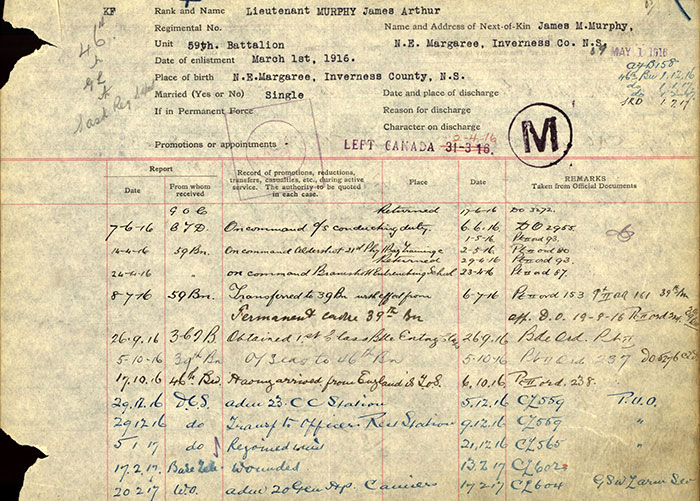 KF Rank and Name Lieutenant MURPHY James Arthur
Regimental No. Name and Address of Next-of-Kin James M.Murphy,
Unit 59th. Battalion N.E. Margaree, Inverness Co. N.S.
MAY 1 1916
Date of enlistment March 1st, 1916.
Place of birth N.E.Margaree, Inverness County, N.S.
Married (Yes or No) Single Date and place of discharge
If in Permanent Force Reason for discharge
Character on discharge
Promotions or appointments
LEFT CANADA 31-3-16.
M
Report
Date From whom received
Record of promotions, reductions, transfers, casualties, etc., during active service. The authority to be quoted in each case.
Place
Date
REMARKS
Taken from Official Documents
G O C Returned 17-6-16 DO 3272.
7-6-16 On command o/s conducting duty. 6-6-16. DO 2955.
1-5-16 Pt II ord 93.
14-4-16 59 Bn. On command Aldershot 2-5-16 Pt II ord 80
Returned 29-4-16 Pt II ord 93.
24-4-16 " on command Bramshott Entrenching School 23-4-16 Pt II ord 87.
8-7-16 59 Bn. Transferred to 39 Bn with effect from 6-7-16 Pt II ord 153
Permanent cadre 39th Bn
26-9-16 Obtained 1st Class 26.9.16 Bde Ord.
5-10-16 39th Bn O/Seas to 46th Bn 5-10-16 Pt II Ord 237
17.10.16 46th Bn. Having arrived from England is T.O.S. 6.10.16 Pt II ord. 238.
29.12.16 D.G.S. adm 23 C C Station 5.12.16 CL 559 P.U.O.
29.12.16 do Transf to Officers Rest Station 9.12.16 CL 559 "
5 1 17 do Rejoined unit 21.12.16 CL 565 "
17.2.17. Wounded 13.2.17 CL 602
20 2 17 W.O. adm 20 Gen Hp Camiers 17 2 17 CL 604